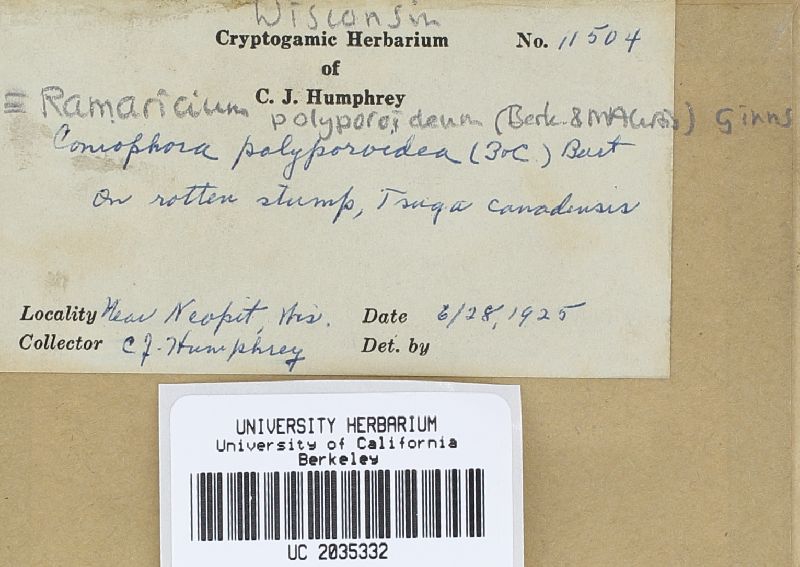 Wisconsin
Cryptogamic Herbarium No. 11504
of
C. J. Humphrey
≡ Ramaricium polyporoideum (Berk. & MA Curtis) Ginns
Coniophora polyporoidea (B&C.) Burt
On rotten stump, Tsuga canadensis
Locality Near Neopit, Wis. Date 6/28, 1925
Collector C J. Humphrey Det. by
UNIVERSITY HERBARIUM
University of California
Berkeley
UC 2035332